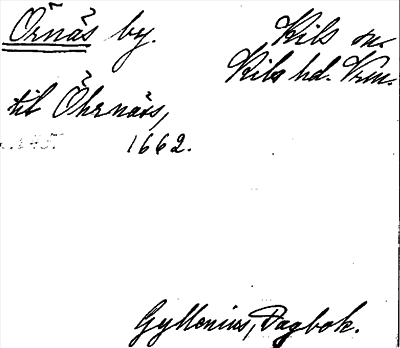 Örnäs by. Kils sn.
Kils hd. Vrm.
til Öhrnääs,
1662.
Gyllenius, Dagbok.